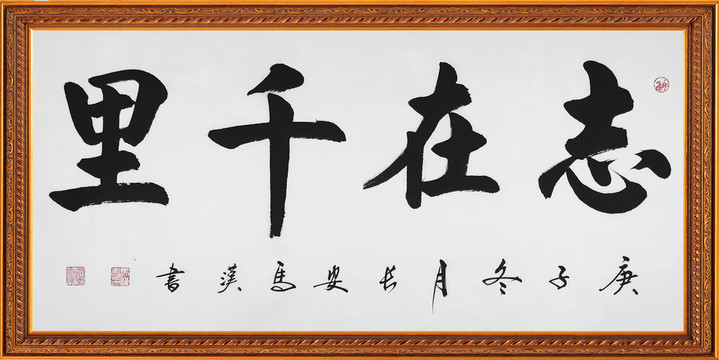 志在千里
庚子冬月长安马汉书